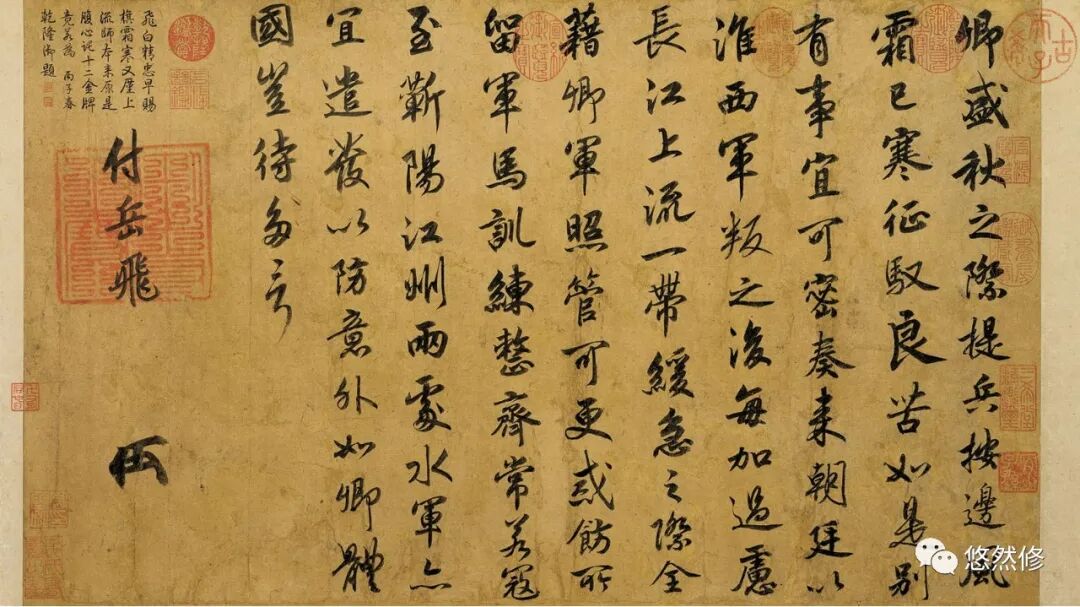 卿盛秋之際提兵按邊風
霜已寒征馭良苦如是別
有事宜可密奏来朝廷以
淮西軍叛之後每加過慮
長江上流一帶緩急之際全
藉卿軍照管可更戒飭所
留軍馬訓練整齊常若寇
至蘄陽江州兩處水軍亦
宜遣發以防意外如卿體
國豈待多言
付岳飛
飛白精忠早賜
旗霜寒又廑上
流師本来原是
腹心託十二金牌
竟若為 丙子春
乾隆御題
古希天子
悠然修